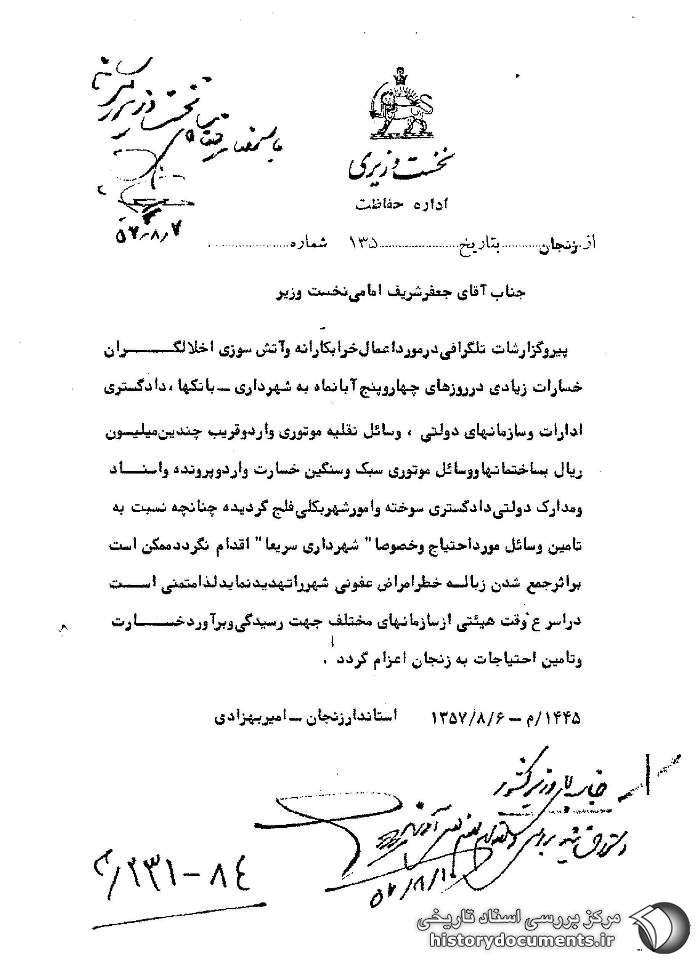 نخست وزیری
اداره حفاظت
باستحضار جناب نخست وزیر
۵۷-۸-۷
از زنجان بتاریخ ۱۳۵ شماره
جناب آقای جعفر شریف امامی نخست وزیر
پیرو گزارشات تلگرافی در مورد اعمال خرابکارانه و آتش سوزی اخلالگران
خسارات زیادی در روزهای چهار و پنج آبانماه به شهرداری ـ بانکها ، دادگستری
ادارات و سازمانهای دولتی ، وسائل نقلیه موتوری وارد و قریب چندین میلیون
ریال بساختمانها و وسائل موتوری سبک و سنگین خسارت وارد و پرونده و اسناد
و مدارک دولتی دادگستری سوخته و امور شهر بکلی فلج گردیده چنانچه نسبت به
تامین وسائل مورد احتیاج و خصوصا " شهرداری سریعا " اقدام نگردد ممکن است
بر اثر جمع شدن زباله خطر امراض عفونی شهر را تهدید نماید لذا متمنی است
در اسرع وقت هیئتی از سازمانهای مختلف جهت رسیدگی و برآورد خسارت
و تامین احتیاجات به زنجان اعزام گردد .
۱۴۴۵/م – ۱۳۵۷/۸/۶ استاندار زنجان ـ امیر بهزادی
جناب آقای وزیر کشور
۵۷/۸/۱۰
۲۳۱-۸۴/م
مرکز بررسی اسناد تاریخی
historydocuments.ir